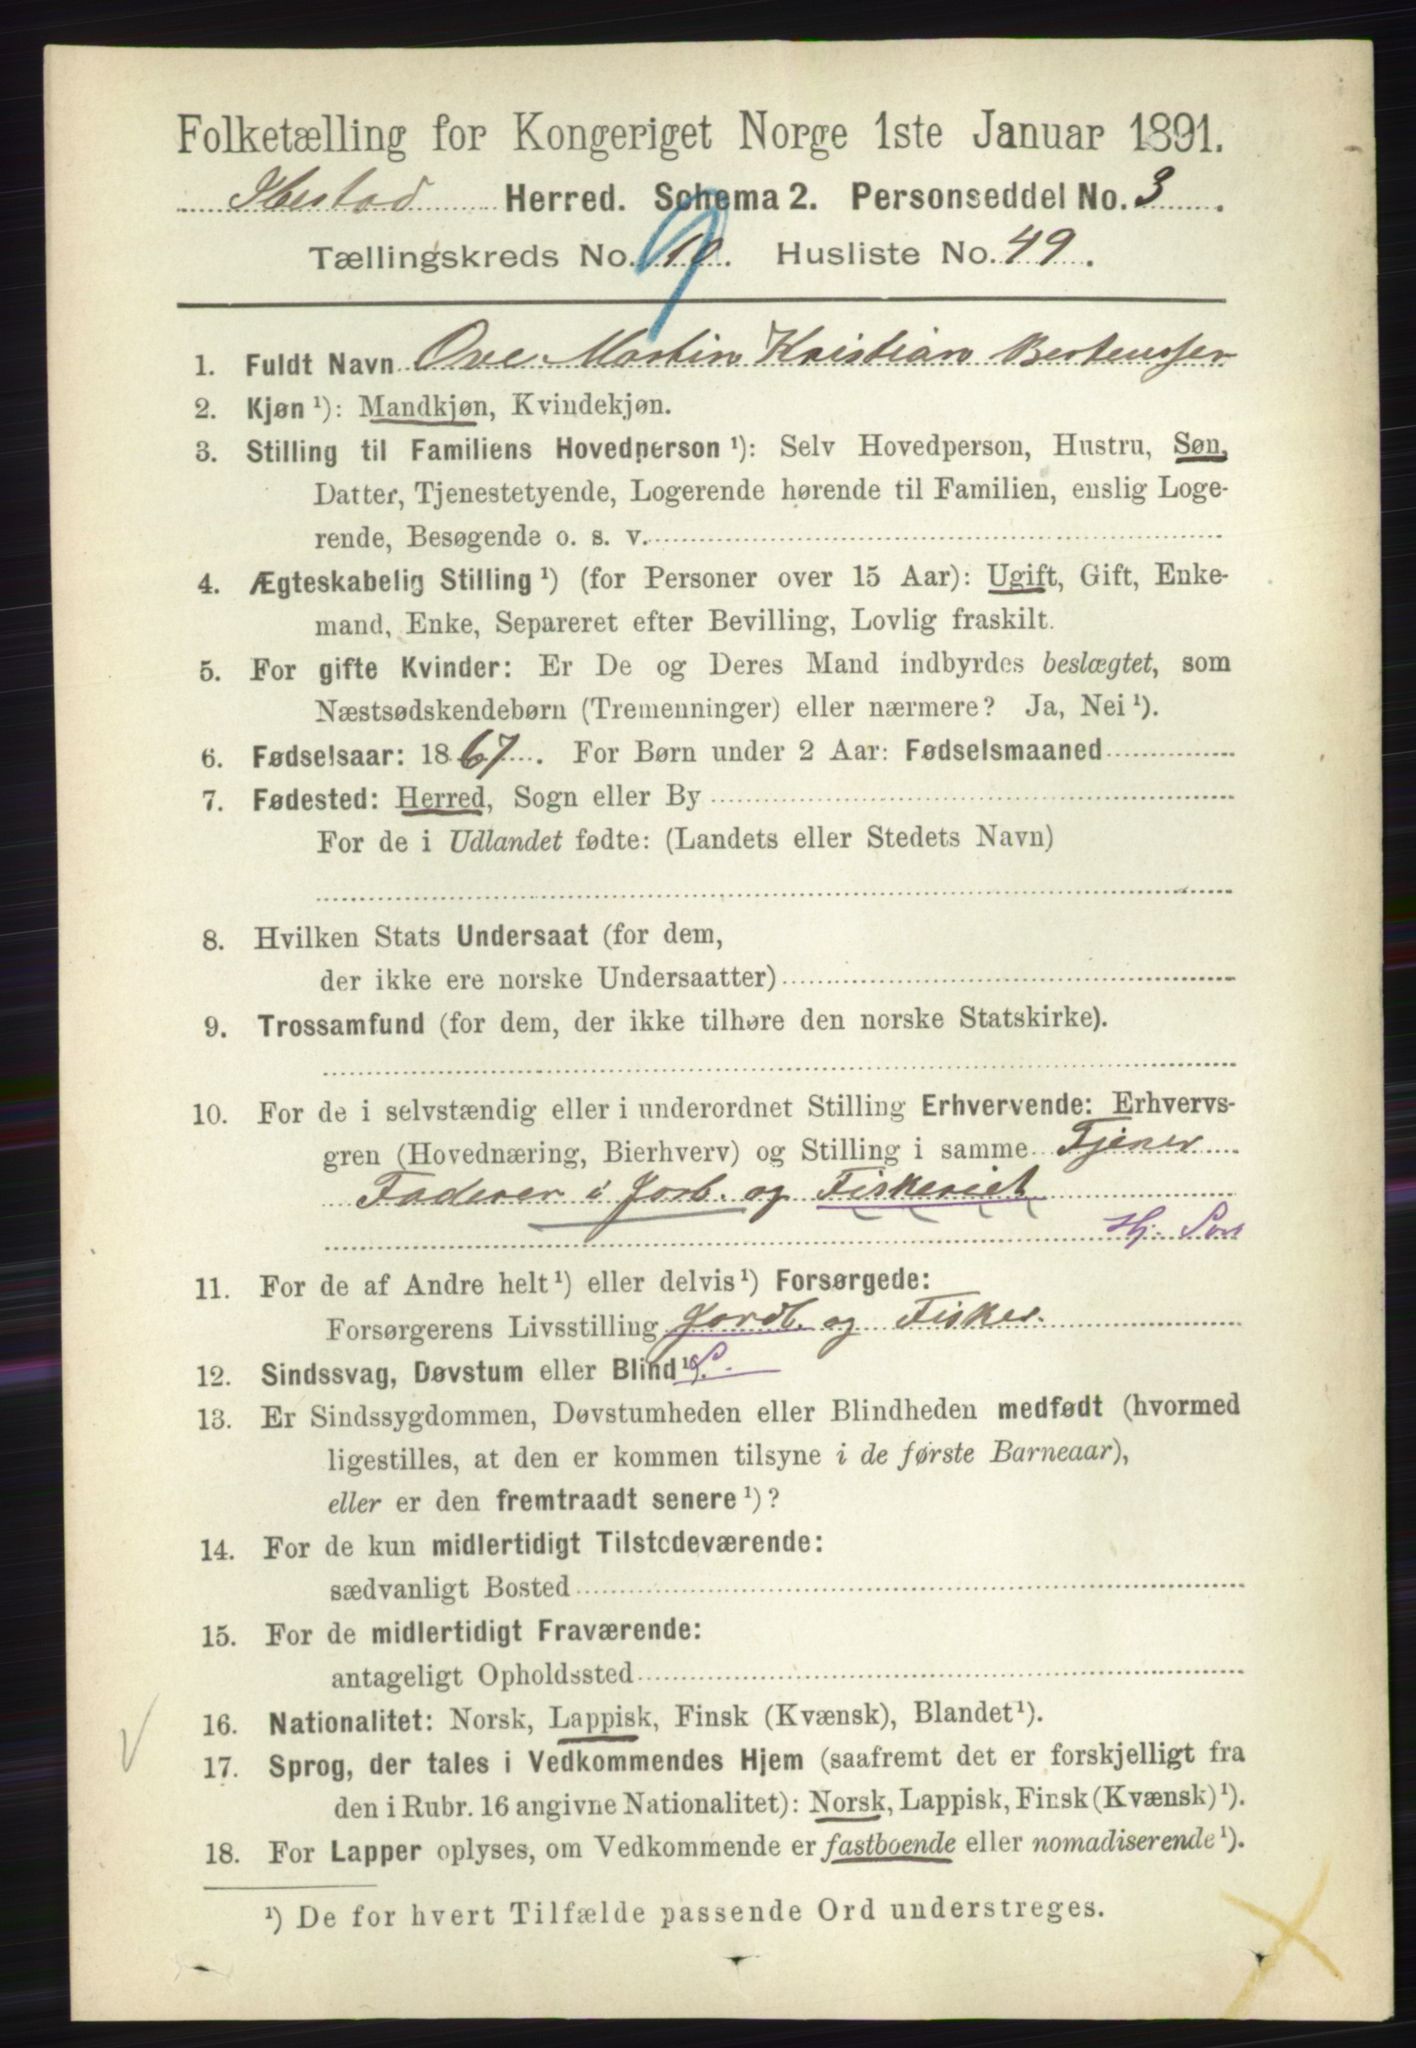 Folketælling for Kongeriget Norge 1ste Januar 1891.
Ibestad Herred. Schema 2. Personseddel No. 3.
Tællingskreds No. 10. 9 Husliste No. 49.
1. Fuldt Navn Ove Martin Kristian Bertenssen
2. Kjøn ¹): Mandkjøn, Kvindekjøn.
3. Stilling til Familiens Hovedperson ¹): Selv Hovedperson, Hustru, Søn,
Datter, Tjenestetyende, Logerende hørende til Familien, enslig Loge-
rende, Besøgende o. s. v.
4. Ægteskabelig Stilling ¹) (for Personer over 15 Aar): Ugift, Gift, Enke-
mand, Enke, Separeret efter Bevilling, Lovlig fraskilt.
5. For gifte Kvinder: Er De og Deres Mand indbyrdes beslægtet, som
Næstsødskendebørn (Tremenninger) eller nærmere? Ja, Nei ¹).
6. Fødselsaar: 1867. For Børn under 2 Aar: Fødselsmaaned
7. Fødested: Herred, Sogn eller By
For de i Udlandet fødte: (Landets eller Stedets Navn)
8. Hvilken Stats Undersaat (for dem,
der ikke ere norske Undersaatter)
9. Trossamfund (for dem, der ikke tilhøre den norske Statskirke).
10. For de i selvstændig eller i underordnet Stilling Erhvervende: Erhvervs-
gren (Hovednæring, Bierhverv) og Stilling i samme Tjener
Faderer i Jorb. og Fiskeriet
Hj. Søn
11. For de af Andre helt ¹) eller delvis ¹) Forsørgede:
Forsørgerens Livsstilling Jordb. og Fisker.
12. Sindssvag, Døvstum eller Blind ¹).
13. Er Sindssygdommen, Døvstumheden eller Blindheden medfødt (hvormed
ligestilles, at den er kommen tilsyne i de første Barneaar),
eller er den fremtraadt senere ¹)?
14. For de kun midlertidigt Tilstedeværende:
sædvanligt Bosted
15. For de midlertidigt Fraværende:
antageligt Opholdssted
16. Nationalitet: Norsk, Lappisk, Finsk (Kvænsk), Blandet ¹).
17. Sprog, der tales i Vedkommendes Hjem (saafremt det er forskjelligt fra
den i Rubr. 16 angivne Nationalitet): Norsk, Lappisk, Finsk (Kvænsk) ¹).
18. For Lapper oplyses, om Vedkommende er fastboende eller nomadiserende ¹).
¹) De for hvert Tilfælde passende Ord understreges.